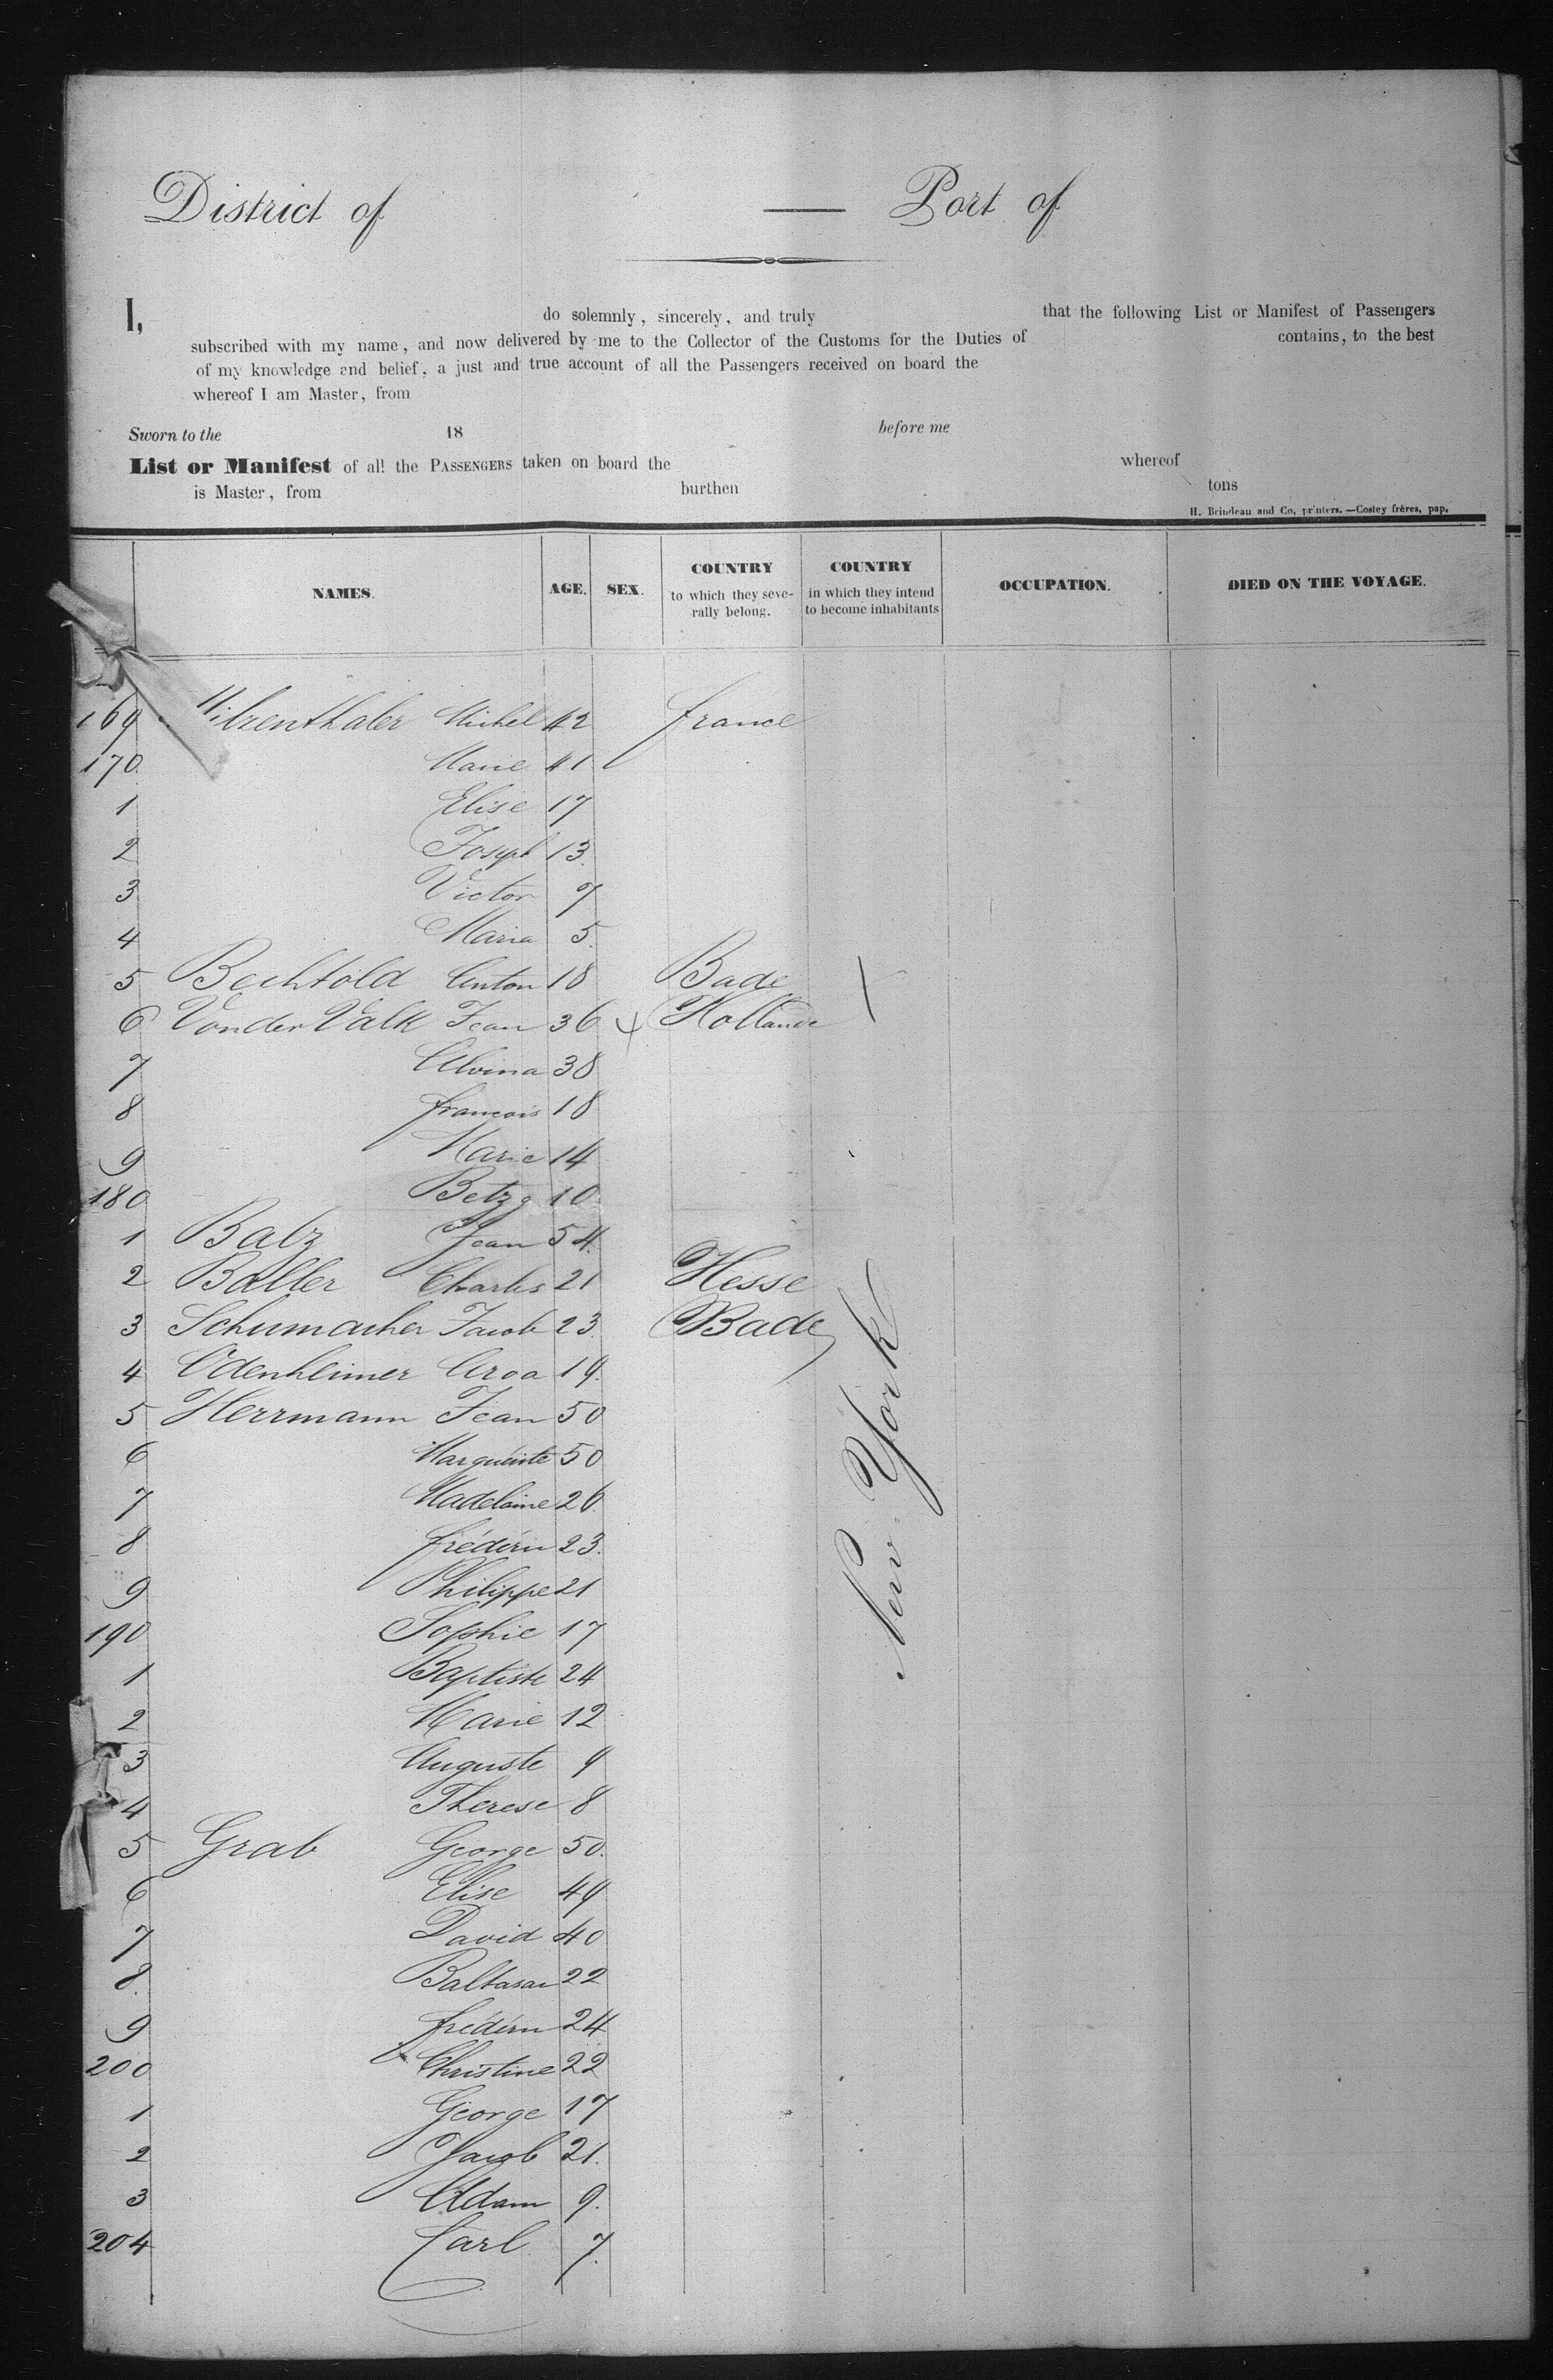 District of — Port of
I, do solemnly, sincerely, and truly that the following List or Manifest of Passengers
subscribed with my name, and now delivered by me to the Collector of the Customs for the Duties of contains, to the best
of my knowledge and belief, a just and true account of all the Passengers received on board the
whereof I am Master, from
Sworn to the 18 before me
List or Manifest of all the PASSENGERS taken on board the whereof
is Master, from burthen tons
H. Brindeau and Co, printers. —Costey frères, pap.
NAMES. AGE. SEX. COUNTRY to which they severally belong. COUNTRY in which they intend to become inhabitants OCCUPATION. DIED ON THE VOYAGE.
169 Michel 42 france
170 Marie 41
1 Elise 17
2 Joseph 13
3 Victor 7
4 Maria 5
5 Bechtold Anton 18 Bade
6 Vonder Valk Jean 36 Hollande
7 Alvina 38
8 francois 18
9 Marie 14
180 Betzy 10
1 Balz Jean 54
2 Baller Charles 21 Hesse
3 Schumacher Jacob 23 Bade
4 Odenheimer Aroa 19
5 Herrmann Jean 50
6 Marguerite 50
7 Madelaine 26
8 frédéric 23
9 Philippe 21
190 Sophie 17
1 Baptiste 24
2 Marie 12
3 Auguste 9
4 Therese 8
5 Grab George 50
6 Elise 49
7 David 40
8 Baltasar 22
9 frédéric 24
200 Christine 22
1 George 17
2 Jacob 21
3 Adam 9
204 Carl 7
New-York